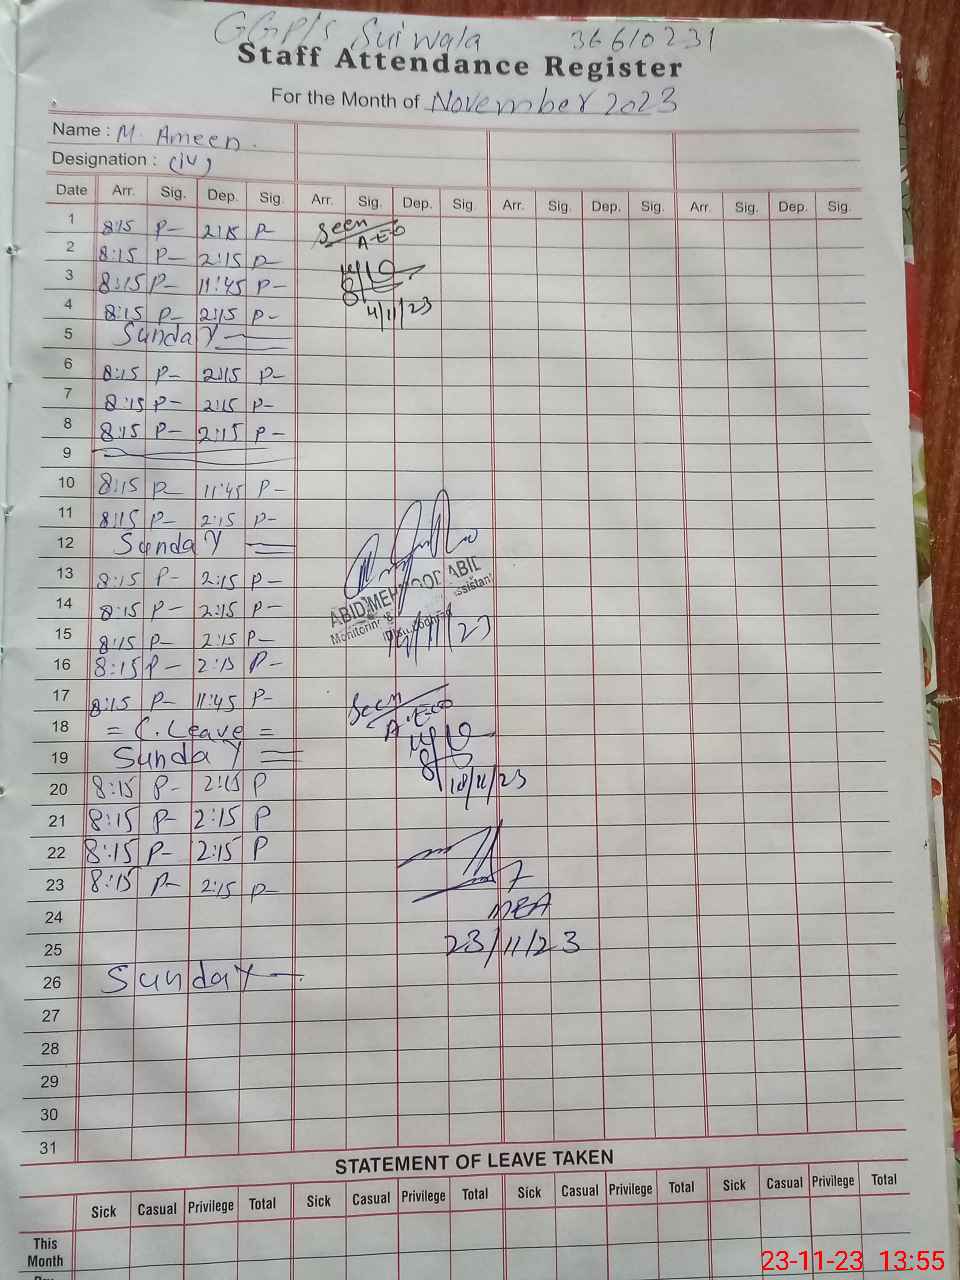 GGP/S Suiwala 36610231
Staff Attendance Register
For the Month of November 2023
Name : M. Ameen.
Designation : (iv)
Date Arr. Sig. Dep. Sig. Arr. Sig. Dep. Sig. Arr. Sig. Dep. Sig. Arr. Sig. Dep. Sig.
1 8:15 P- 2:15 P- Seen
A-E-O
2 8:15 P- 2:15 P-
3 8:15 P- 11:45 P-
4 8:15 P- 2:15 P- 4/11/23
5 Sunday
6 8:15 P- 2:15 P-
7 8:15 P- 2:15 P-
8 8:15 P- 2:15 P-
9
10 8:15 P- 11:45 P-
11 8:15 P- 2:15 P-
12 Sunday
13 8:15 P- 2:15 P-
14 8:15 P- 2:15 P- ABID MEHMOOD ABID
15 8:15 P- 2:15 P- Monitoring Assistant
16 8:15 P- 2:15 P-
17 8:15 P- 11:45 P- Seen
18 = C. Leave = A.E.O
19 Sunday
20 8:15 P- 2:15 P 18/11/23
21 8:15 P- 2:15 P
22 8:15 P- 2:15 P
23 8:15 P- 2:15 P-
24 MEA
25 23/11/23
26 Sunday
27
28
29
30
31
STATEMENT OF LEAVE TAKEN
Sick Casual Privilege Total Sick Casual Privilege Total Sick Casual Privilege Total Sick Casual Privilege Total
This
Month
23-11-23 13:55